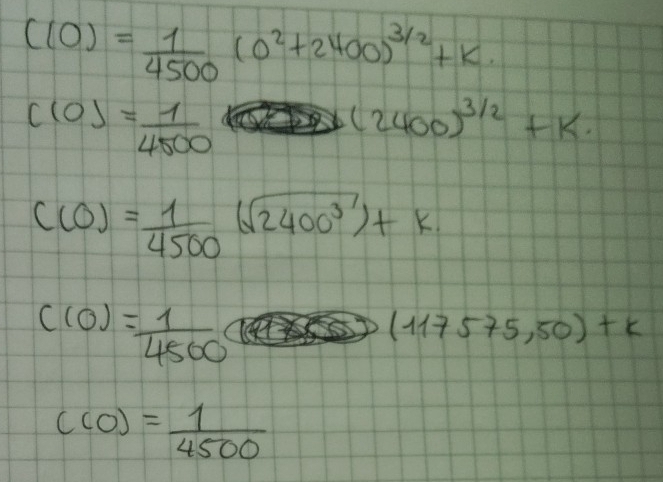 C(0) = 1/4500 (0²+2400)^3/2 + K.
C(0) = 1/4500 (2400)^3/2 + K.
C(0) = 1/4500 (√2400³) + K.
C(0) = 1/4500 (117575,50) + K
C(0) = 1/4500